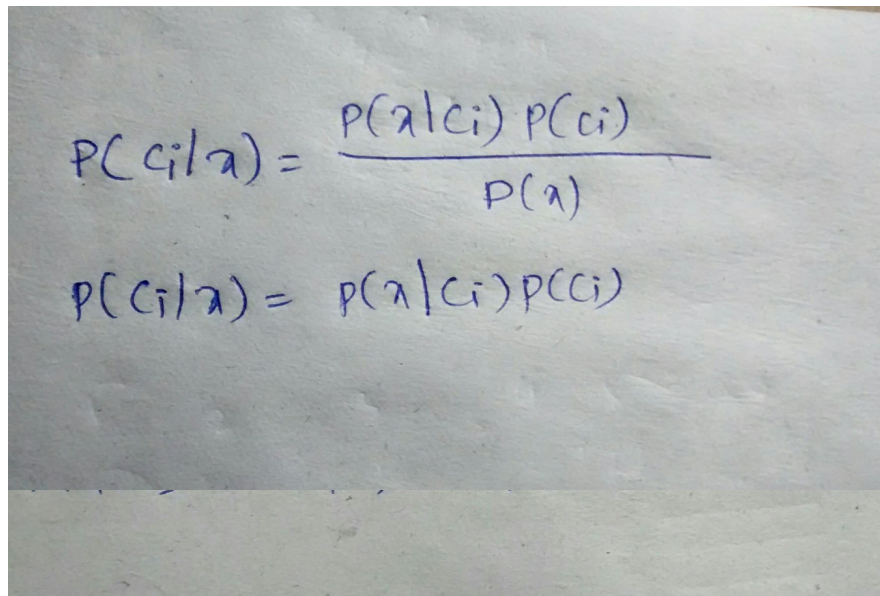 P(Ci|x) = P(x|Ci) P(Ci) / P(x)
P(Ci|x) = P(x|Ci) P(Ci)